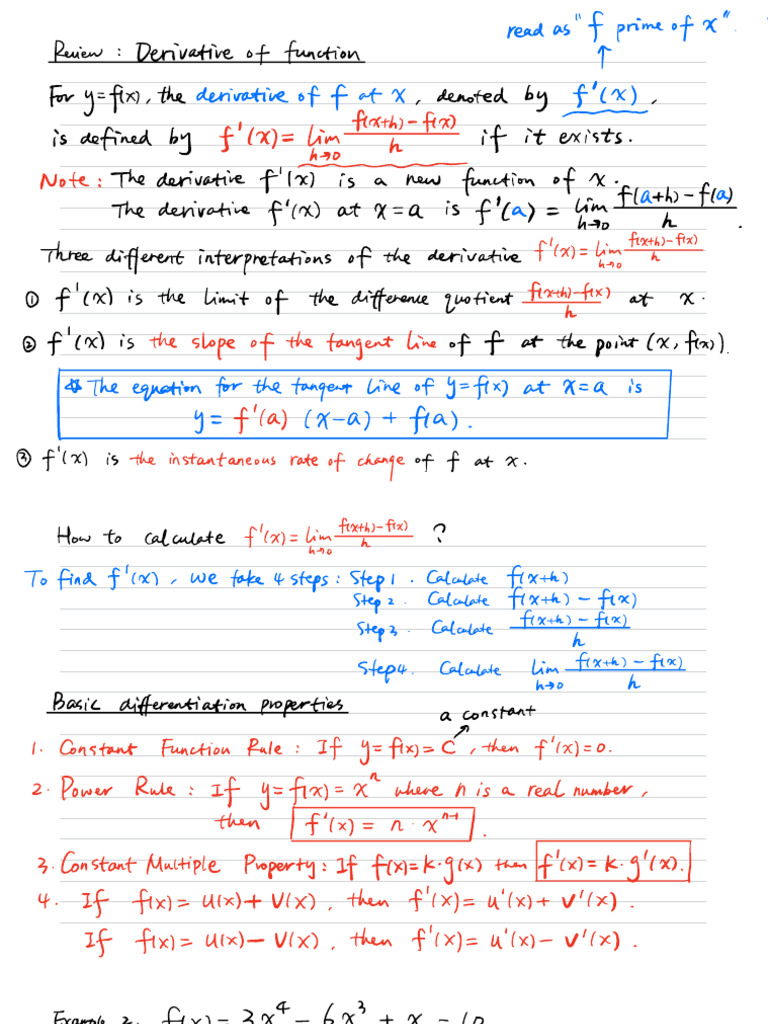 read as "f prime of x".
Review : Derivative of function
For y=f(x), the derivative of f at x, denoted by f'(x),
is defined by f'(x)= lim h→0 f(x+h)-f(x) / h if it exists.
Note: The derivative f'(x) is a new function of x.
The derivative f'(x) at x=a is f'(a) = lim h→0 f(a+h)-f(a) / h.
Three different interpretations of the derivative f'(x)= lim h→0 f(x+h)-f(x) / h
① f'(x) is the limit of the difference quotient f(x+h)-f(x) / h at x.
② f'(x) is the slope of the tangent line of f at the point (x, f(x)).
* The equation for the tangent line of y=f(x) at x=a is
y= f'(a) (x-a) + f(a).
③ f'(x) is the instantaneous rate of change of f at x.
How to calculate f'(x)= lim h→0 f(x+h)-f(x) / h ?
To find f'(x), we take 4 steps: Step 1. Calculate f(x+h)
Step 2. Calculate f(x+h) - f(x)
Step 3. Calculate f(x+h) - f(x) / h
Step 4. Calculate lim h→0 f(x+h) - f(x) / h
Basic differentiation properties
a constant
1. Constant Function Rule: If y=f(x)= C, then f'(x)=0.
2. Power Rule: If y=f(x)= x^n where n is a real number,
then f'(x) = n · x^n-1.
3. Constant Multiple Property: If f(x)=k·g(x) then f'(x)=k·g'(x).
4. If f(x)= u(x)+ v(x), then f'(x)= u'(x)+ v'(x).
If f(x)= u(x)- v(x), then f'(x)= u'(x)- v'(x).
Example 2. f(x)= 3x^4 - 6x^3 + x - 10